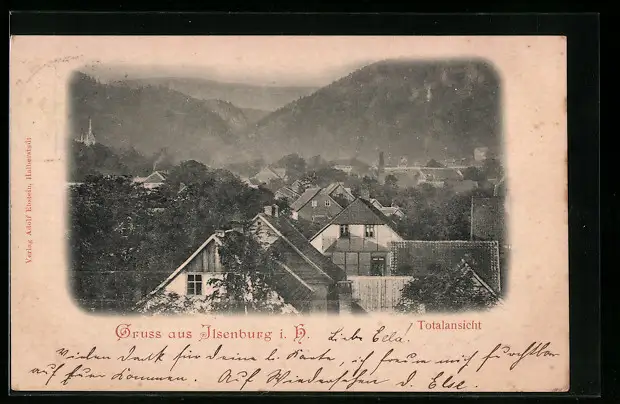 Verlag Adolf Ebstein, Halberstadt
Gruss aus Ilsenburg i. H.
Totalansicht
Liebe Ella!
Vielen Dank für deine l. Karte, ich freue mich furchtbar
auf Euer Kommen. Auf Wiedersehen d. Else.